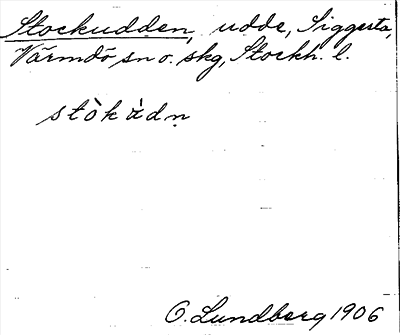 Stockudden, udde, Siggesta,
Värmdö sn o. skg, Stockh. l.
stòkàdṇ
O. Lundberg 1906